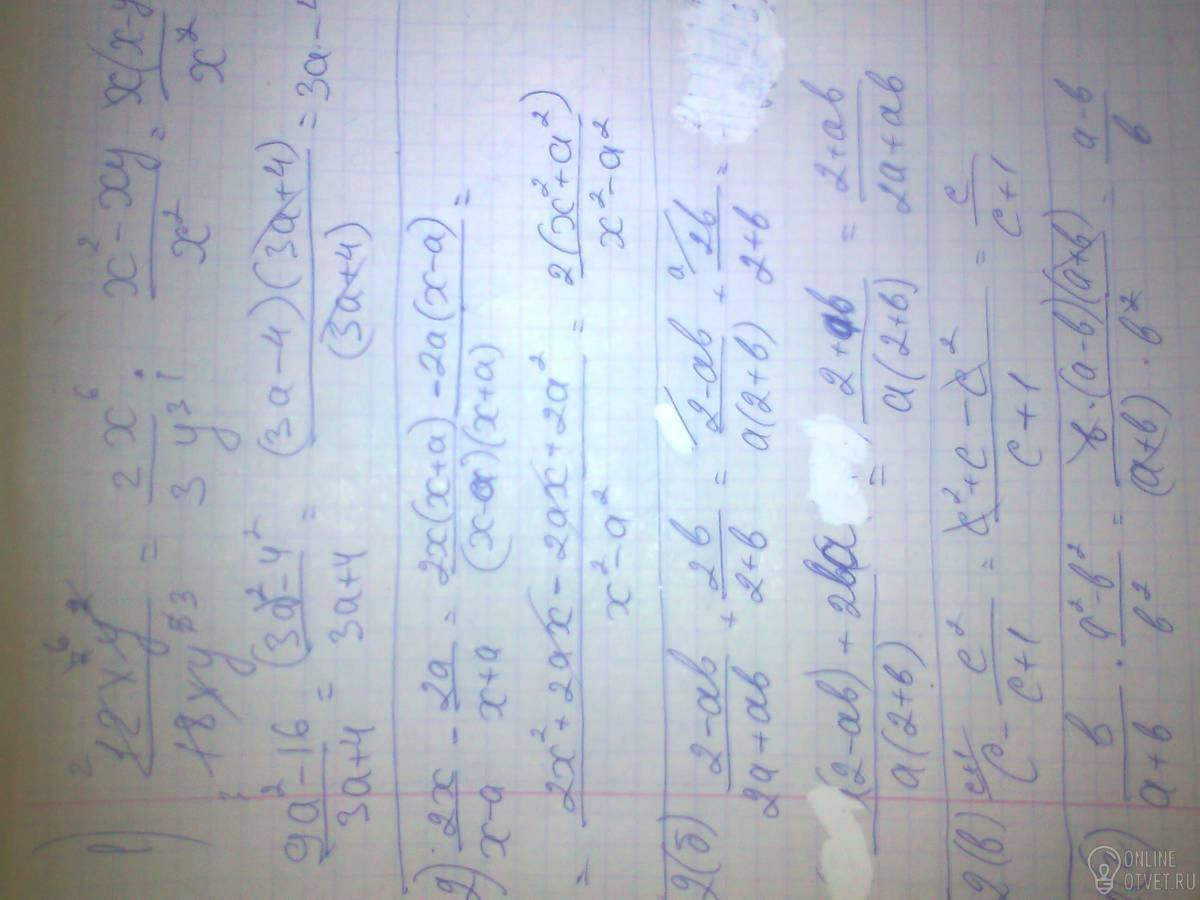 1) 12x⁷y²/18xy⁵ = 2x⁶/3y³; x²-xy/x² = x(x-y/x²
9a²-16/3a+4 = (3a)²-4²/3a+4 = (3a-4)(3a+4)/(3a+4) = 3a-4
2) 2x/x-a - 2a/x+a = 2x(x+a)-2a(x-a)/(x-a)(x+a) =
= 2x²+2ax-2ax+2a²/x²-a² = 2(x²+a²)/x²-a²
2(б) 2-ab/2a+ab + 2b/2+b = 2-ab/a(2+b) + a/2b/2+b =
(2-ab)+2ba/a(2+b) = 2+ab/a(2+b) = 2+ab/2a+ab
2(в) c - c²/c+1 = c²+c-c²/c+1 = c/c+1
) b/a+b · a²-b²/b² = b·(a-b)(a+b)/(a+b)·b² = a-b/b
ONLINE
OTVET.RU